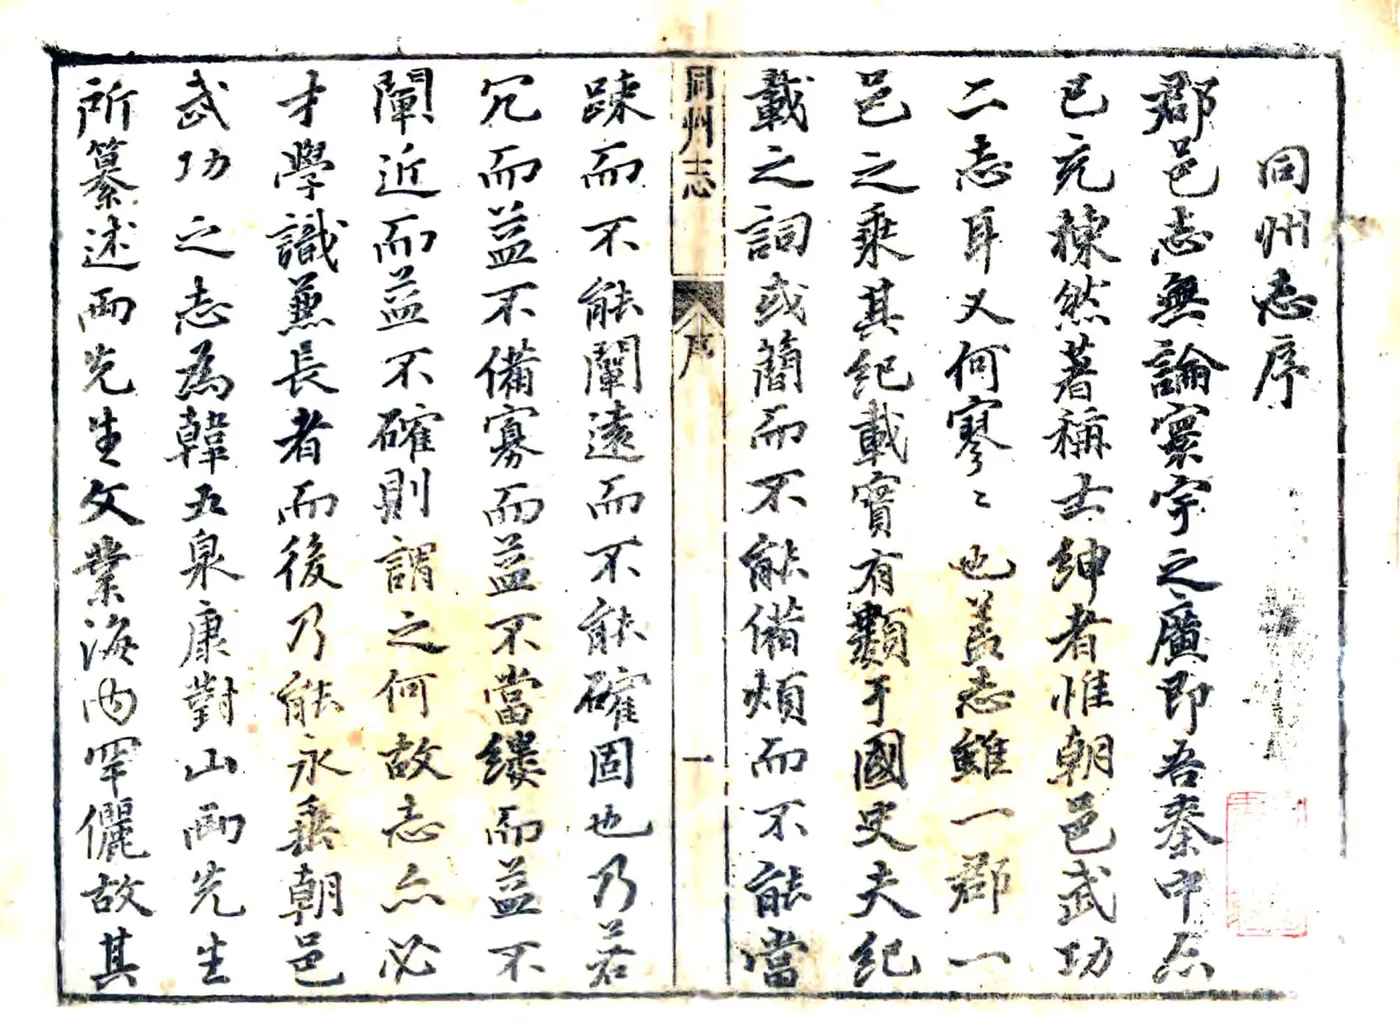 同州志序
郡邑志無論寰宇之廣即吾秦中亦
已充棟然著稱士紳者惟朝邑武功
二志耳又何寥〻也蓋志雖一郡一
邑之乘其紀載實有類于國史夫紀
載之詞或簡而不能備煩而不能當
同州志
序
一
踈而不能闡遠而不能確固也乃若
冗而益不備寡而益不當縷而益不
闡近而益不確則謂之何故志亦必
才學識兼長者而後乃能永垂朝邑
武功之志為韓五泉康對山両先生
所纂述両先生文業海內罕儷故其